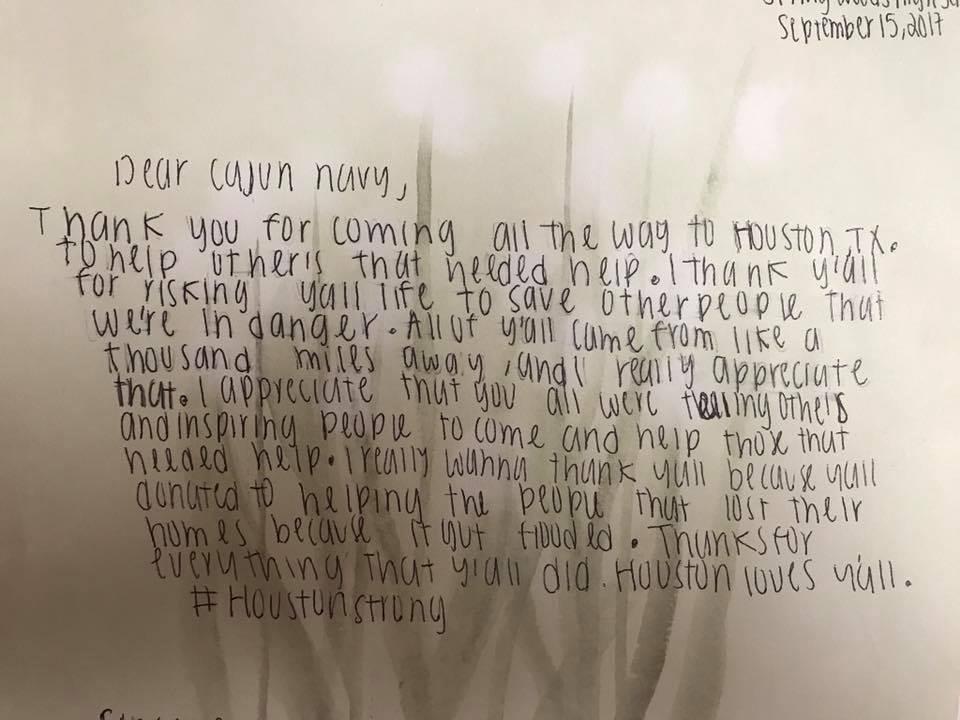 September 15, 2017
Dear cajun navy,
Thank you for coming all the way to Houston, TX.
to help other's that needed help. I thank y'all
for risking yall life to save other people that
we're in danger. All of y'all came from like a
thousand miles away, and I really appreciate
that. I appreciate that you all were telling others
and inspiring people to come and help those that
needed help. I really wanna thank yall because yall
donated to helping the people that lost their
homes because it got flooded. Thanks for
everything that y'all did. Houston loves y'all.
#Houstonstrong